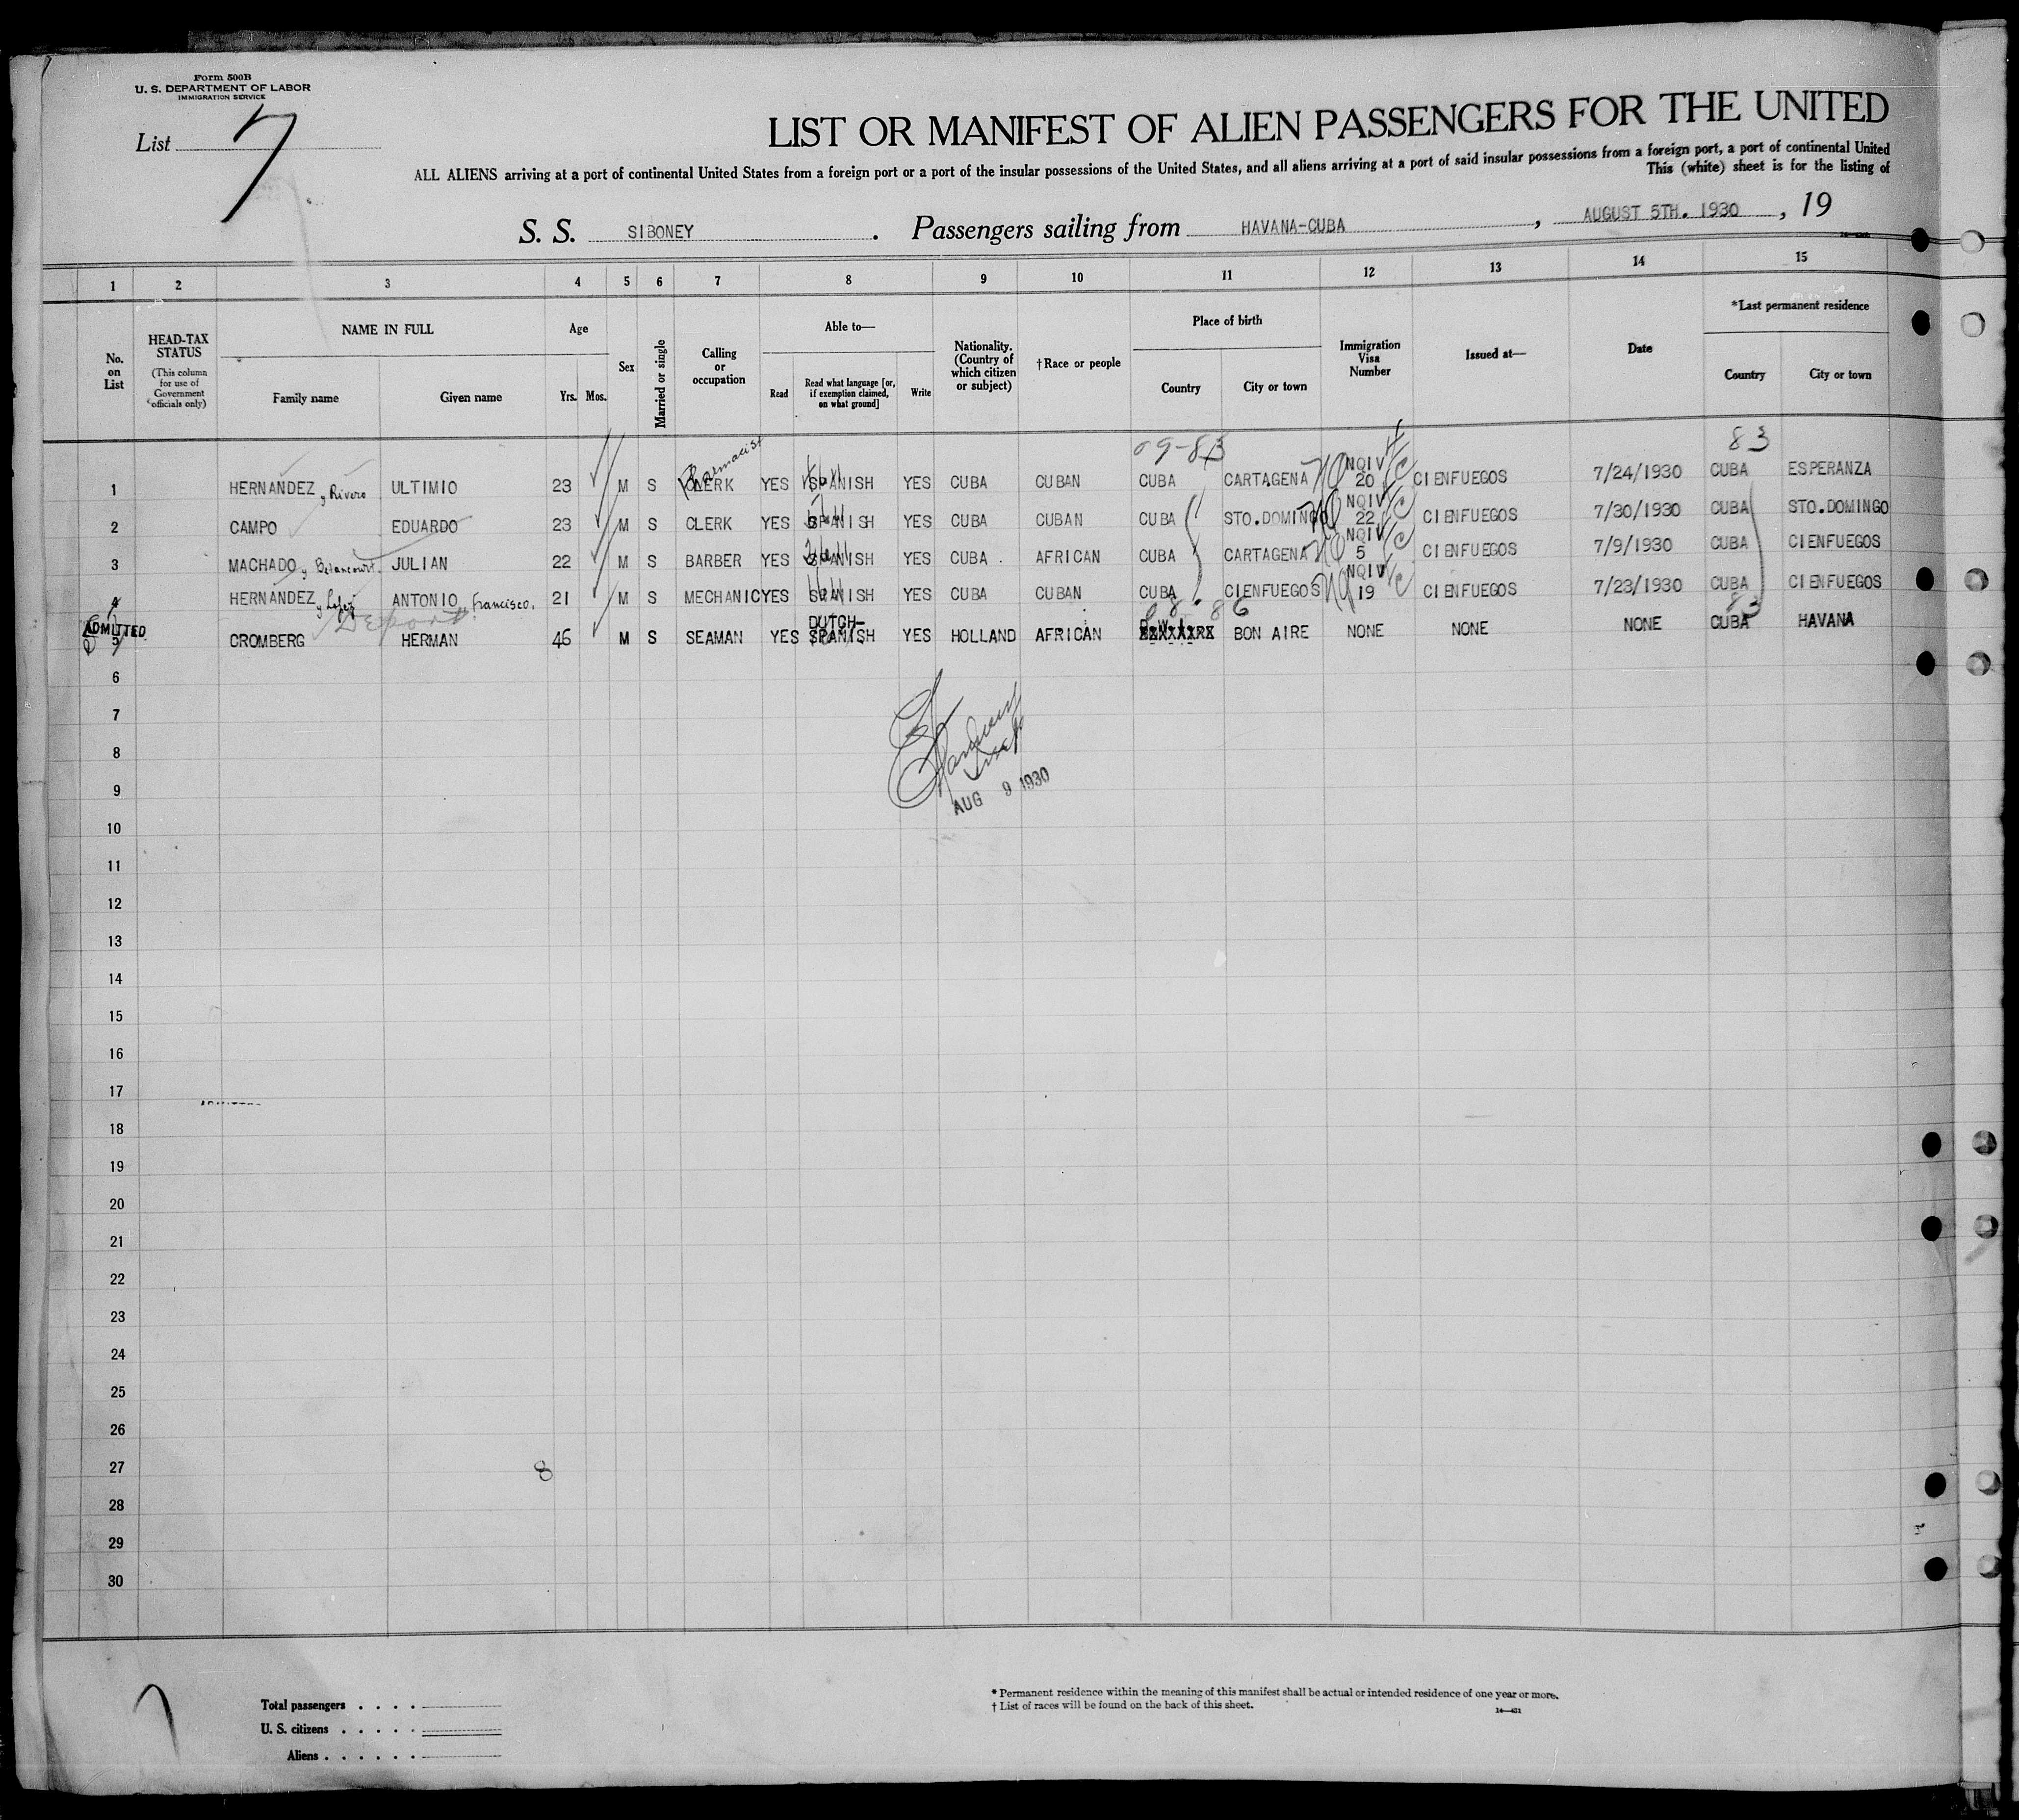 Form 500B
U. S. DEPARTMENT OF LABOR
IMMIGRATION SERVICE
List 7
LIST OR MANIFEST OF ALIEN PASSENGERS FOR THE UNITED
ALL ALIENS arriving at a port of continental United States from a foreign port or a port of the insular possessions of the United States, and all aliens arriving at a port of said insular possessions from a foreign port, a port of continental United
This (white) sheet is for the listing of
S. S. SIBONEY. Passengers sailing from HAVANA-CUBA, AUGUST 5TH. 1930, 19
1 2 3 4 5 6 7 8 9 10 11 12 13 14 15
No. on List
HEAD-TAX STATUS (This column for use of Government officials only)
NAME IN FULL
Family name Given name
Age
Yrs. Mos.
Sex
Married or single
Calling or occupation
Able to—
Read
Read what language [or, if exemption claimed, on what ground]
Write
Nationality. (Country of which citizen or subject)
†Race or people
Place of birth
Country City or town
Immigration Visa Number
Issued at—
Date
*Last permanent residence
Country City or town
09-83 83
Pharmacist
1 HERNANDEZ y Rivero ULTIMIO 23 M S CLERK YES SPANISH YES CUBA CUBAN CUBA CARTAGENA NQIV 20 CIENFUEGOS 7/24/1930 CUBA ESPERANZA
2 CAMPO EDUARDO 23 M S CLERK YES SPANISH YES CUBA CUBAN CUBA STO.DOMINGO NQIV 22 CIENFUEGOS 7/30/1930 CUBA STO.DOMINGO
3 MACHADO y Betancourt. JULIAN 22 M S BARBER YES SPANISH YES CUBA . AFRICAN CUBA CARTAGENA NQIV 5 CIENFUEGOS 7/9/1930 CUBA CIENFUEGOS
4 HERNANDEZ y Lopez ANTONIO Francisco. 21 M S MECHANIC YES SPANISH YES CUBA CUBAN CUBA CIENFUEGOS NQIV 19 CIENFUEGOS 7/23/1930 CUBA CIENFUEGOS
Deport
08 86
ADMITTED
5 CROMBERG HERMAN 46 M S SEAMAN YES DUTCH-SPANISH YES HOLLAND AFRICAN BON AIRE NONE NONE NONE CUBA HAVANA
6
7
8
9
AUG 9 1930
10
11
12
13
14
15
16
17
18
19
20
21
22
23
24
25
26
27
8
28
29
30
Total passengers . . . .
U. S. citizens . . . . .
Aliens . . . . . .
* Permanent residence within the meaning of this manifest shall be actual or intended residence of one year or more.
† List of races will be found on the back of this sheet.
14—431